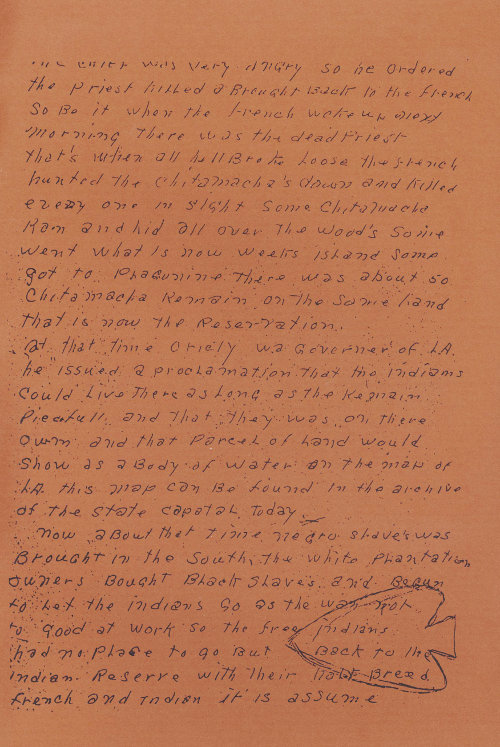 The chief was very angry so he ordered
the Priest killed & Brought Back to the french
So Be it when the french woke up next
morning There was the dead Priest
That's when all hell Broke Loose The french
hunted The Chitamacha's down and killed
every one in sight Some Chitamacha
Ran and hid all over The wood's Some
went what is now weeks island Some
got to Plaqunine There was about 50
Chitamacha Remain on the Same land
that is now the Reservation.
at that time Oriely wa Governer of LA.
he issued a proclamation that the indians
Could Live There as Long as the Remain
Piecefull and that They was on there
Own and that Parcel of Land would
Show as a Body of Water on the map of
LA this map can be found in the archive
of the State Capotal Today.
now about that time negro slave's was
Brought in the South, the white Plantation
owners Bought Black Slave's and Begun
to Let the indians Go as the was not
to good at work so the free indians
had no Place to go But Back to the
indian Reserve with Their half Breed
french and Indian it is assume